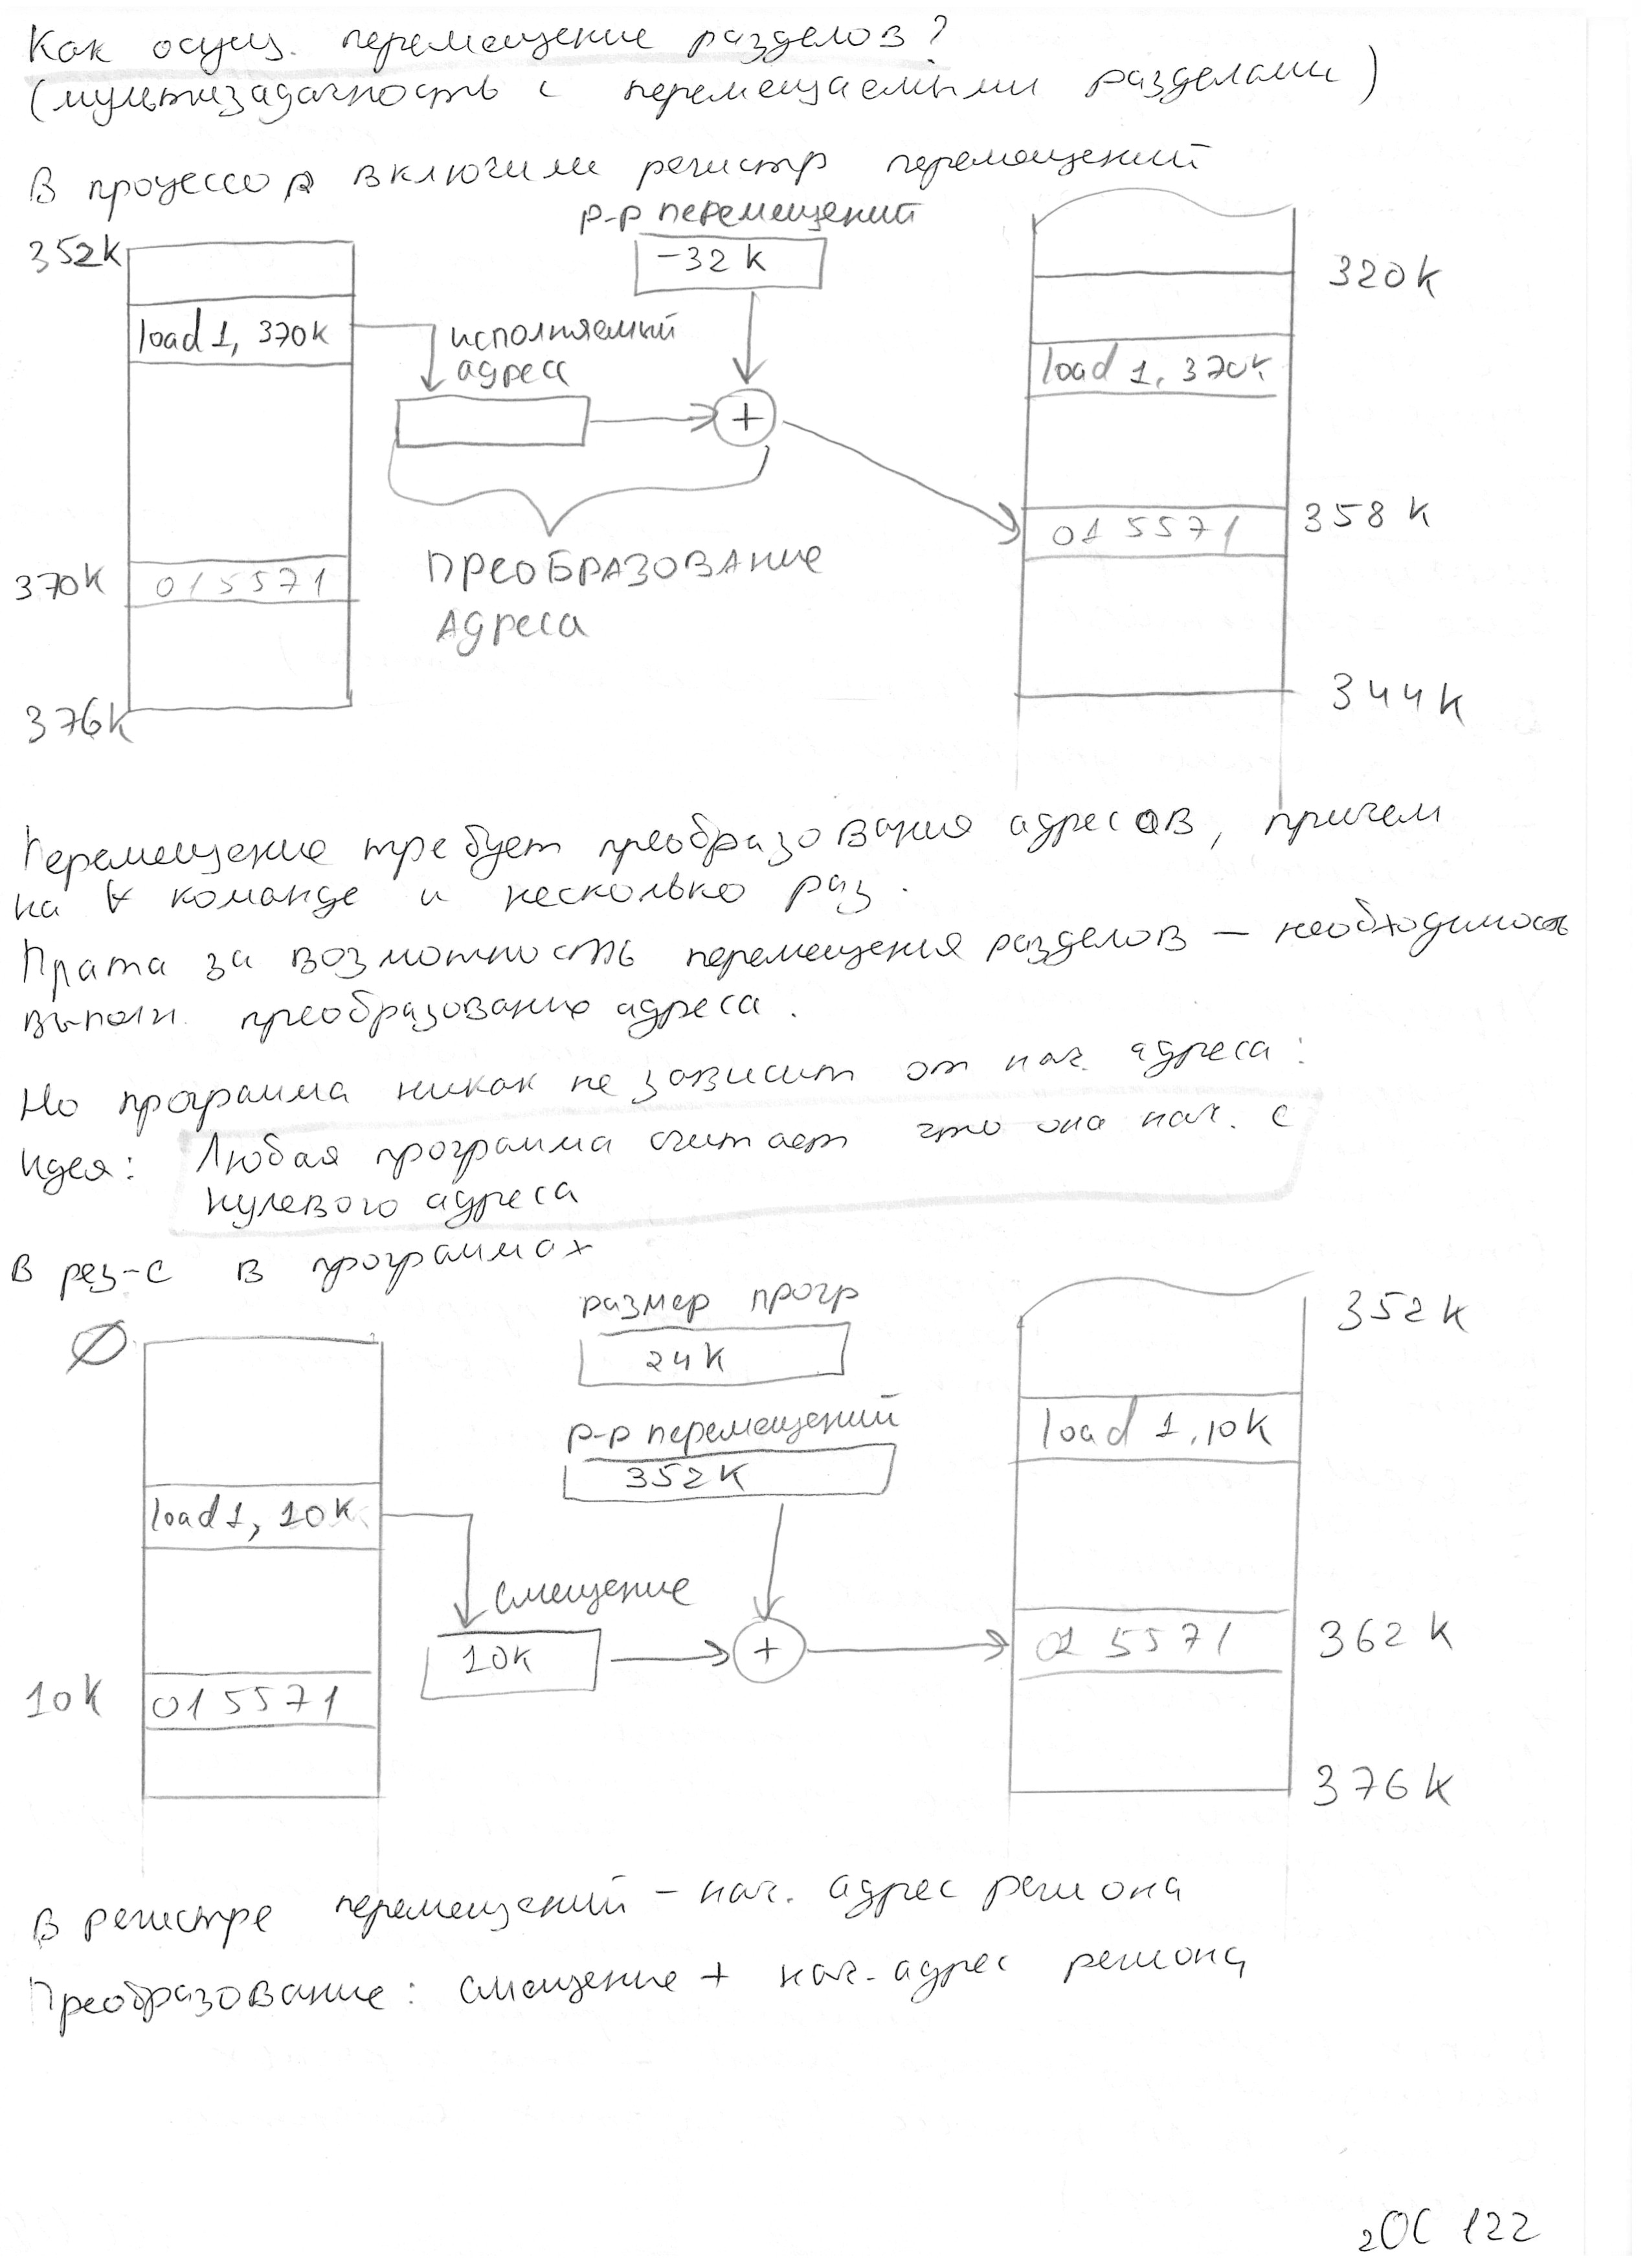 Как осущ. перемещение разделов?
(мультизадачность с перемещаемыми разделами)
В процессор включили регистр перемещений
р-р перемещений
352К
-32 К
320К
load 1, 370К
исполняемый
адрес
load 1, 370К
+
015571
358 К
370К
015571
Преобразование
адреса
376К
344К
Перемещение требует преобразования адресов, причем
на ∀ команде и несколько раз.
Плата за возможность перемещения разделов — необходимость
выполн. преобразование адреса.
Но программа никак не зависит от нач. адреса:
Идея: Любая программа считает что она нач. с
нулевого адреса
В рез-с в программах
размер прогр
352К
∅
24К
р-р перемещений
352К
load 1, 10К
load 1, 10К
смещение
10К
+
01 5571
362 К
10К
015571
376К
В регистре перемещений – нач. адрес региона
Преобразование: смещение + нач. адрес региона
2ОС 122